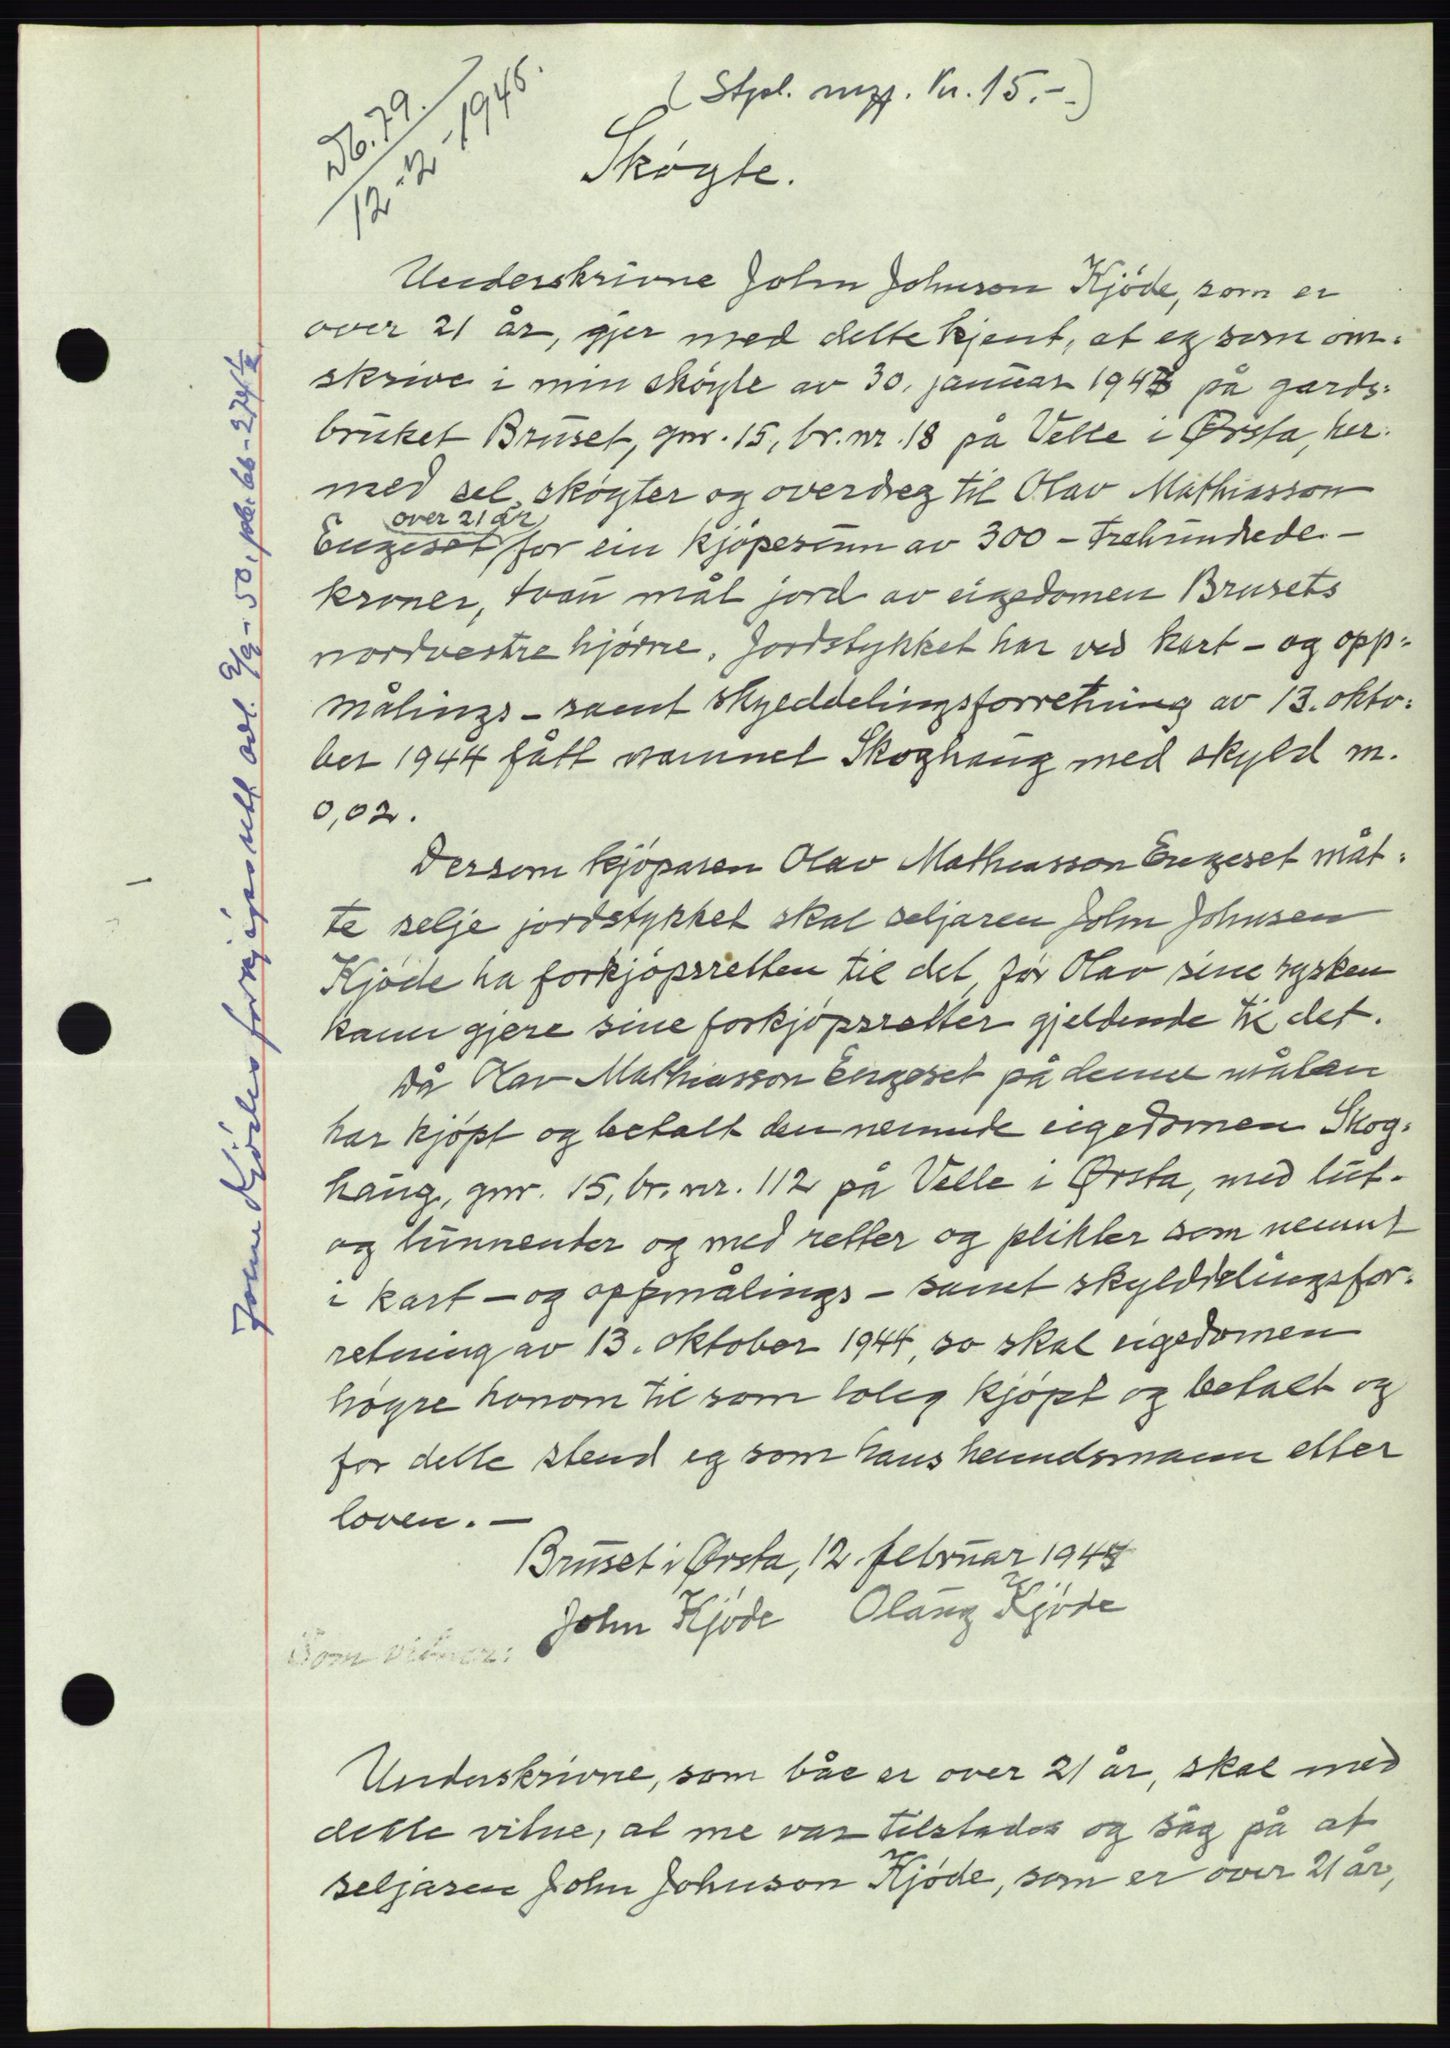 Db. 79.
12-2-1945.
(Stpl. mgf. kr. 15.-.)
Skøyte.
Underskrivne John Johnson Kjöde, som er
over 21 år, gjer med dette kjent, at eg som om-
skrive i min sköyte av 30. januar 1943 på gards-
bruket Bruset, gnr. 15, br. nr. 18 på Velle i Ørsta, her-
med sel, sköyter og overdreg til Olav Mathiasson
over 21 år
Engeset for ein kjöpesum av 300 - trehundrede -
kroner, tvau mål jord av eigedomen Brusets
nordvestre hjörne. Jordstykket har ved kart- og opp-
målings- samt skylddelingsforretning av 13. okto-
ber 1944 fått namnet Skoghaug med skyld m.
0,02.
Dersom kjöparen Olav Mathiasson Engeset måt-
te selje jordstykket skal seljaren John Johnsen
Kjöde ha forkjöpsretten til det, før Olav sine sysken
kann gjere sine forkjöpsretter gjeldende til det.
Då Olav Mathiasson Engeset på denne måten
har kjöpt og betalt den nemnde eigedomen Skog-
haug, gnr. 15, br. nr. 112 på Velle i Ørsta, med lut-
og lunnenter og med retter og plikter som nemnt
i kart- og oppmålings- samt skylddelingsfor-
retning av 13. oktober 1944, so skal eigedomen
høyre honom til som loleg kjöpt og betalt og
for dette stend eg som hans heimelsmann etter
loven. -
Bruset i Ørsta, 12. februar 1945
John Kjöde Olaug Kjöde
Som vitner:
Underskrivne, som båe er over 21 år, skal med
dette vitne, at me var tilstades og såg på at
seljaren John Johnson Kjöde, som er over 21 år,
John Kjödes forkjøpsrett avl. 2/9-50, pb. bb-274 1/2